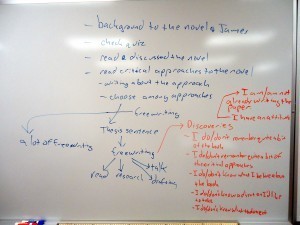 - background to the novel & James
- check quiz
- read & discussed the novel
- read critical approaches to the novel
- writing about the approach
- choose among approaches
freewriting
Thesis sentence
a lot of rewriting
freewriting
read
research
talk
drafting
Discoveries
- I am/am not already writing the paper
- I have an attitude
- I do/don't remember quite a bit of the book
- I do/don't remember quite a bit of the critical approaches
- I do/don't know what I believe about the book
- I do/don't know what I'd like to
- I do/don't know what to do next